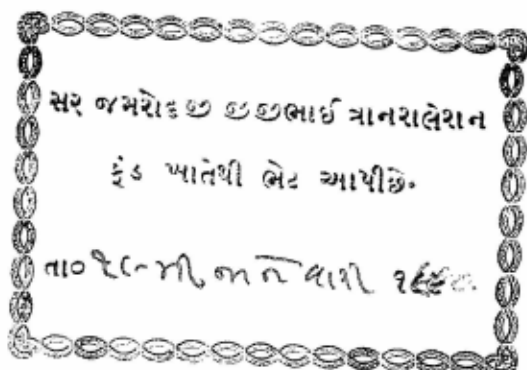 સર જમશેદજી જીજીભાઈ ત્રાનસલેશન
ફંડ ખાતેથી ભેટ આપીછે.
તા૦ મી જાનેવારી